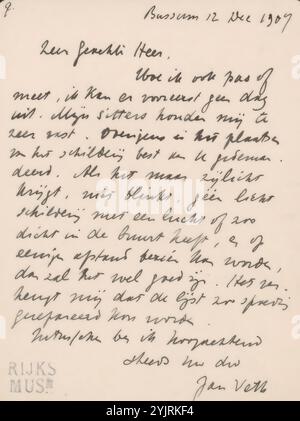 9.
Bussum 12 Dec 1907
Zeer Geachte Heer,
Hoe ik ook pas of
meet, ik kan er vooreerst geen dag
uit. Mijn sitters houden mij te
zeer vast. Overigens is het plaatsen
van het schilderij best aan U
Als het maar zijlicht
krijgt, niet blinkt, geen licht
schilderij met een lucht of zoo
dicht in de buurt heeft, er op
eenige afstand gezien kan worden,
dan zal het wel goed zijn. Het ver-
heugt mij dat de lijst zoo spoedig
gerepareerd kon worden.
Intusschen ben ik hoogachtend
steeds uw dw
Jan Veth
RIJKS
MUSM
alamy
Image ID: 2YJRKF4
www.alamy.com